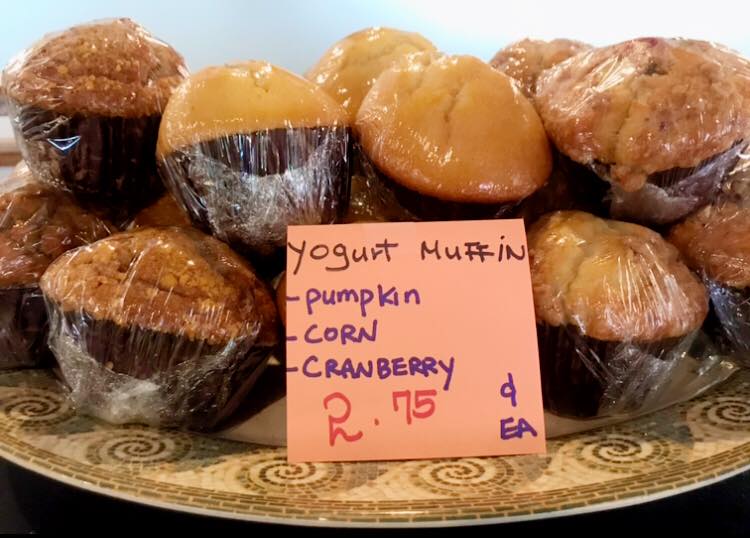 Yogurt Muffin
- pumpkin
- CORN
- CRANBERRY
2.75 ¢
EA